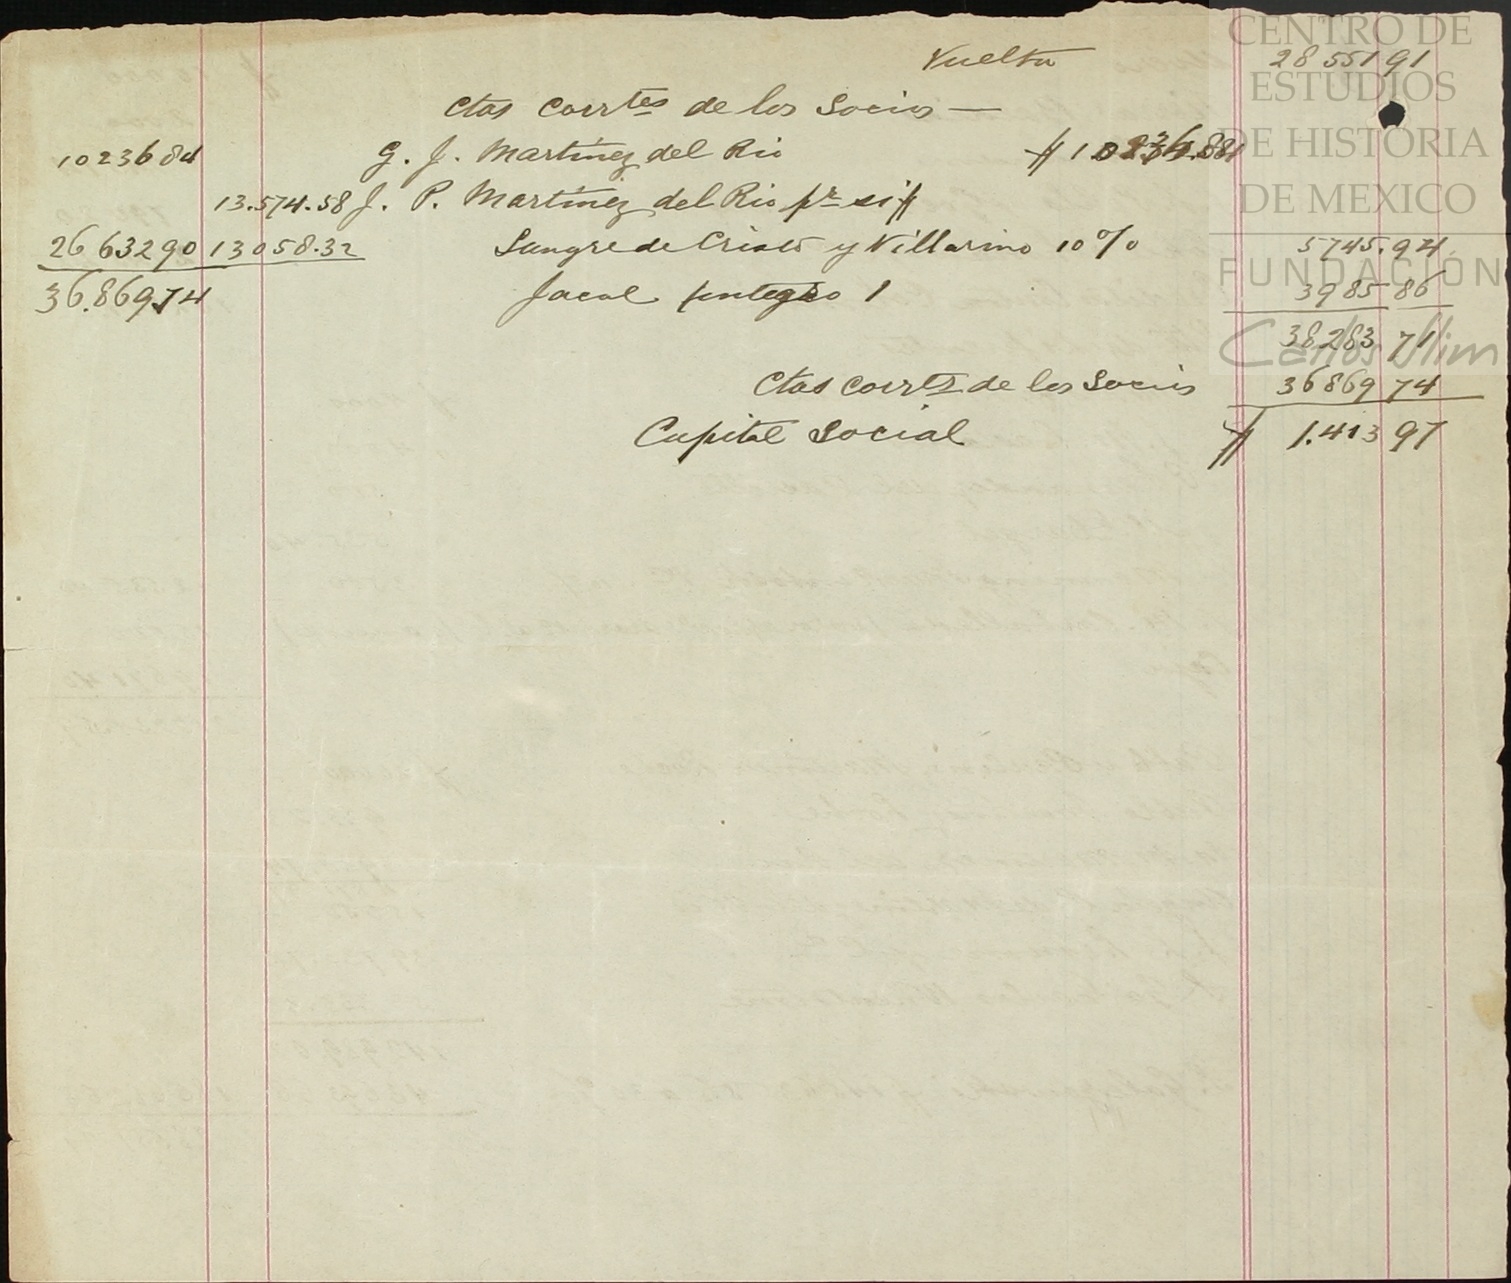 Vuelta 28 551 91
Ctas Corrtes de los Socios —
10236 84 G. J. Martínez del Rio $ 10236.84
13.574.58 J. P. Martínez del Rio pr si
26 632 90 13058.32 Sangre de Cristo y Villarino 10% 5745.94
36.869 74 Jacal 1 3985 86
38283 71
Ctas Corrts de los Socios 36869 74
Capital Social $ 1.413 97
CENTRO DE
ESTUDIOS
DE HISTORIA
DE MEXICO
FUNDACIÓN
Carlos Slim